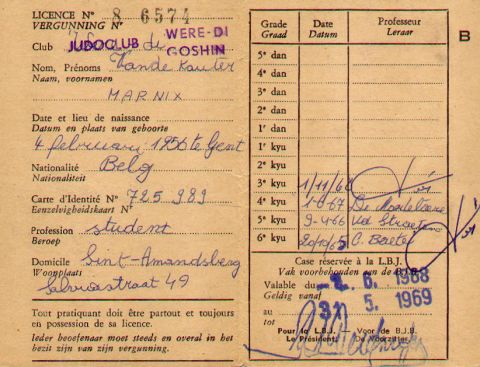 LICENCE N° 8 6574
VERGUNNING N°
Club JUDOCLUB WERE-DI
GOSHIN
Nom, Prénoms Vande Kauter
Naam, voornamen
MARNIX
Date et lieu de naissance
Datum en plaats van geboorte
4 februari 1956 te Gent
Nationalité Belg
Nationaliteit
Carte d'Identité N° 725 989
Eenzelvigheidskaart N°
Profession student
Beroep
Domicile Sint-Amandsberg
Woonplaats
straat 49
Tout pratiquant doit être partout et toujours
en possession de sa licence.
Ieder beoefenaar moet steeds en overal in het
bezit zijn van zijn vergunning.
Grade Date Professeur
Graad Datum Leraar
B
5e dan
4e dan
3e dan
2e dan
1r dan
1r kyu
2e kyu
3e kyu 1/11/68
4e kyu 1-6-67
5e kyu 9-4-66
6e kyu 20/10/65
Case réservée à la L.B.J.
Vak voorbehouden aan de B.J.B.
Valable du 6. 1968
Geldig vanaf
31 5. 1969
au
tot
Pour de L.B.J. — Voor de B.J.B.
Le Président, De Voorzitter,